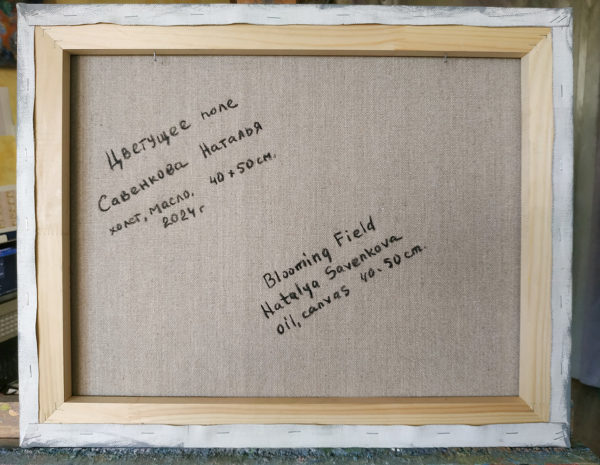 Цветущее поле
Савенкова Наталья
холст, масло. 40+50 см.
2024 г
Blooming Field
Natalya Savenkova
oil, canvas 40.50 cm.